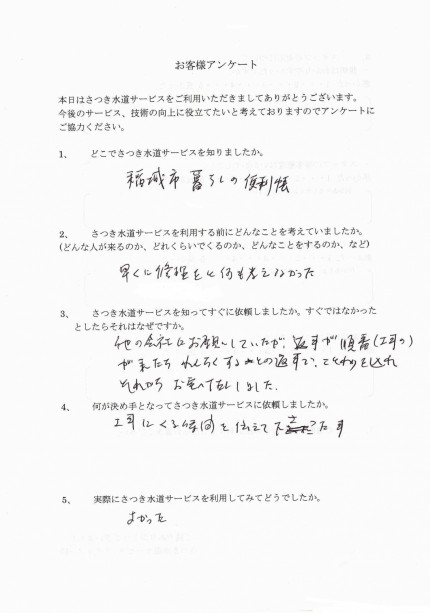 お客様アンケート
本日はさつき水道サービスをご利用いただきましてありがとうございます。
今後のサービス、技術の向上に役立てたいと考えておりますのでアンケートに
ご協力ください。
1、 どこでさつき水道サービスを知りましたか。
稲城市 暮らしの便利帳
2、 さつき水道サービスを利用する前にどんなことを考えていましたか。
(どんな人が来るのか、どれくらいでくるのか、どんなことをするのか、など)
早くに修理をと何も考えなかった
3、 さつき水道サービスを知ってすぐに依頼しましたか。すぐではなかった
としたらそれはなぜですか。
他の会社にお願いしていたが、返事が順番(工事の)
が来たられんらくするとの返事で、ことわりを入れ
それからお電話しました。
4、 何が決め手となってさつき水道サービスに依頼しましたか。
工事にくる時間を伝えて下さった事
5、 実際にさつき水道サービスを利用してみてどうでしたか。
よかった